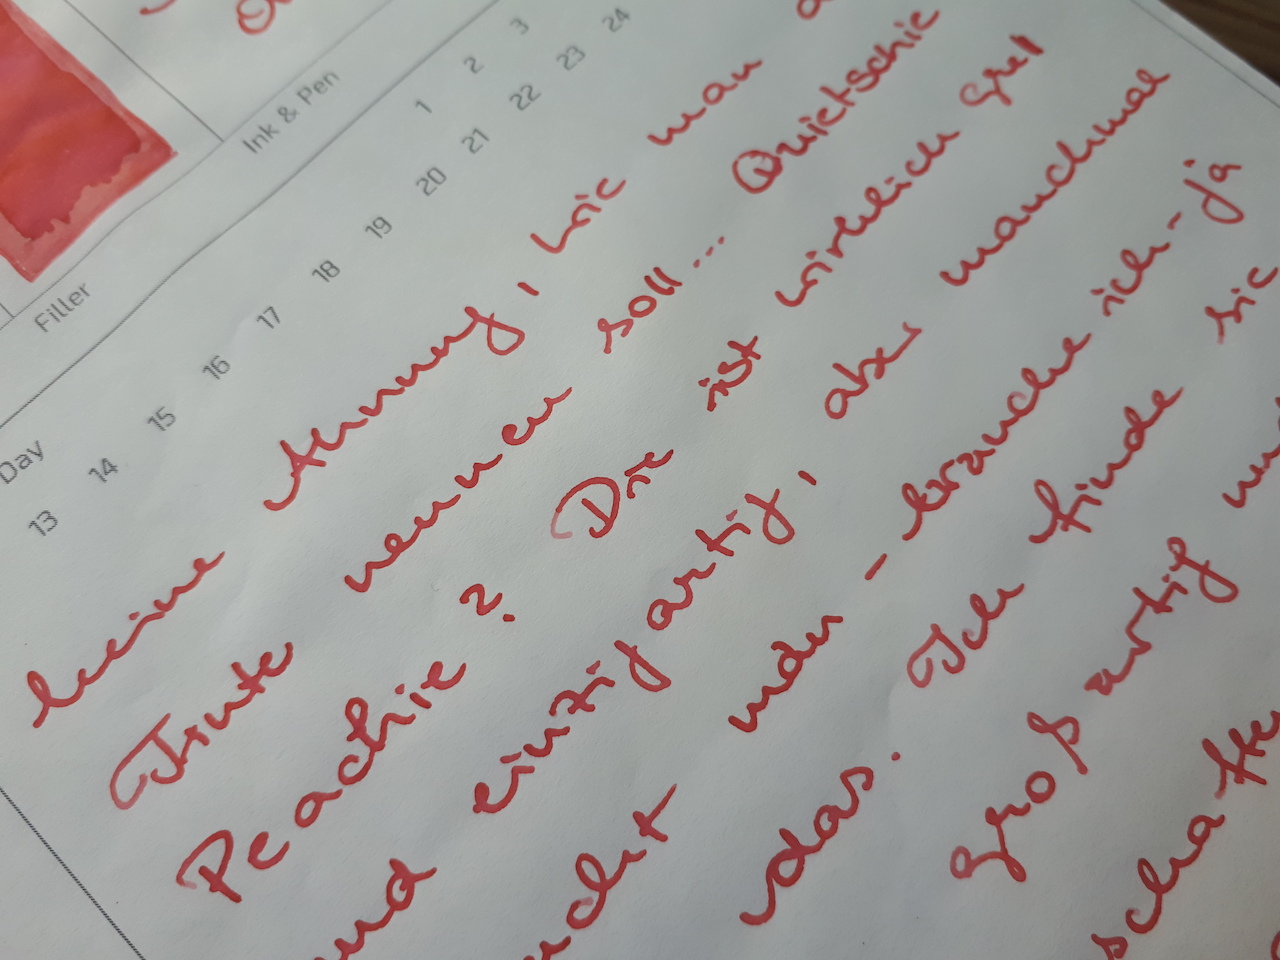 Ink & Pen
Filler
Day 1 2 3
13 14 15 16 17 18 19 20 21 22 23 24
keine Ahnung, wie man
Tinte nennen soll... Quietschie
Peachie? Die ist wirklich grell
und einzigartig, aber manchmal
macht - brauche ich - ja
das. Ich finde sie
großartig und
schaffe